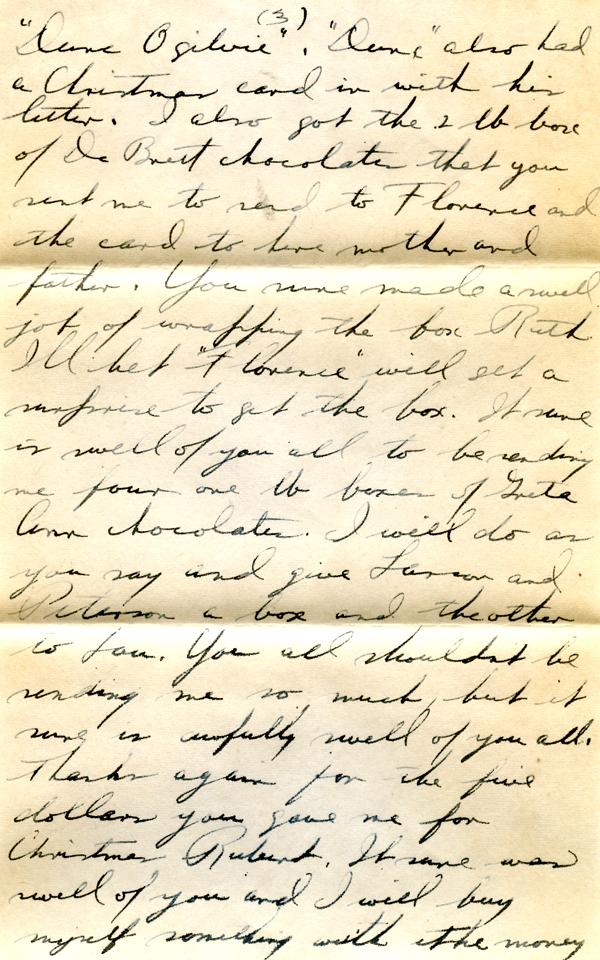 (3)
"Dunc Ogilvie". "Dunc" also had
a Christmas card in with his
letter. I also got the 2 lb box
of De Brett chocolates that you
sent me to send to Florence and
the card to here mother and
father. You sure made a swell
job of wrapping the box Ruth
I'll bet "Florence" will get a
surprise to get the box. It sure
is swell of you all to be sending
me four one lb boxes of Greta
Ann chocolates. I will do as
you say and give Larson and
Peterson a box and the other
to Lau. You all shouldnt be
sending me so much, but it
sure is awfully swell of you all.
Thanks again for the five
dollars you gave me for
Christmas Rubert. It sure was
swell of you and I will buy
myself something with the money